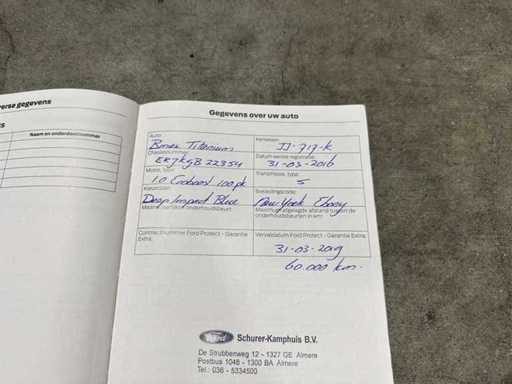 erse gegevens
Naam en onderdeelnummer
Gegevens over uw auto
Auto: Kenteken:
Bmax Titanium JJ-717-K
Chassisnummer: Datum eerste registratie:
EKJKGB 22354 31-03-2016
Motor, type: Transmissie, type:
1.0 Ecoboost 100 pk 5
Kleurcode: Bekledingscode:
Deep Impact Blue New York Ebony
Maximumafgelegde afstand tussen de
onderhoudsbeurten in km:
Contractnummer Ford Protect - Garantie Vervaldatum Ford Protect - Garantie Extra:
Extra:
31-03-2019
60.000 km.
Ford
Schurer-Kamphuis B.V.
De Strubbenweg 12 - 1327 GE Almere
Postbus 1048 - 1300 BA Almere
Tel.: 036 - 5334500